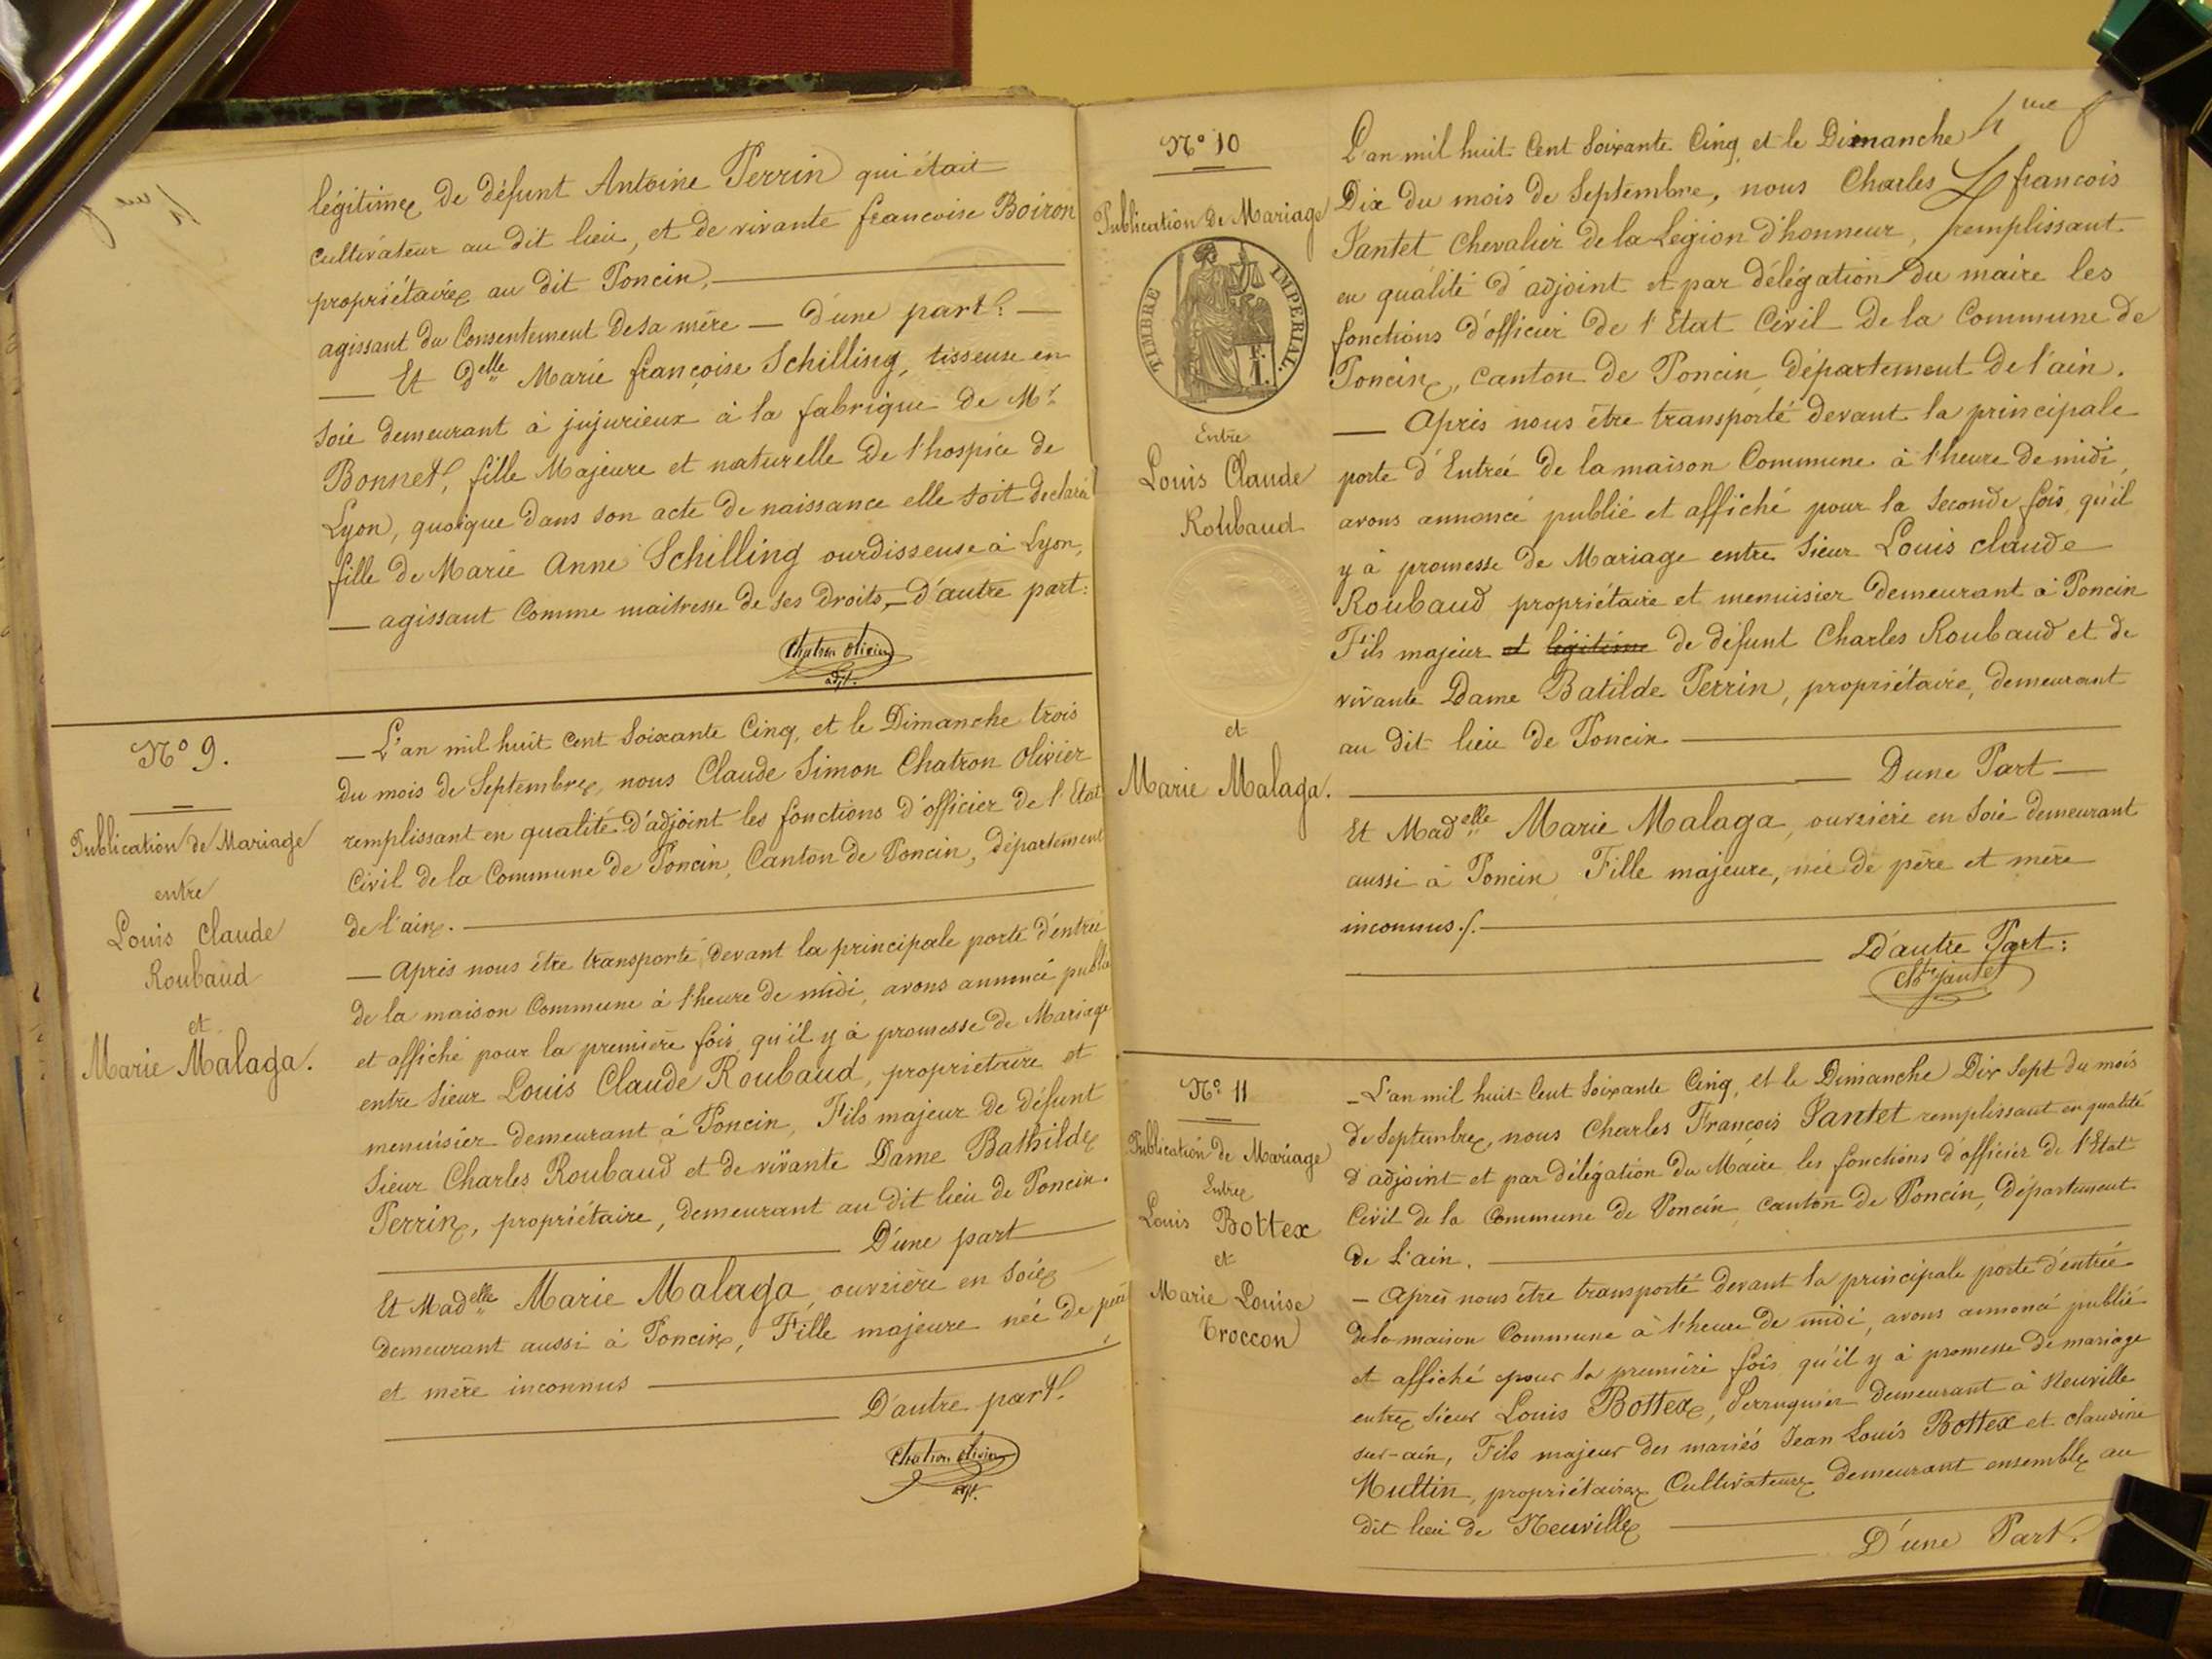 légitime de défunt Antoine Perrin qui était
cultivateur au dit lieu, et de vivante francoise Boiron
propriétaire au dit Poncin,
agissant du Consentement de sa mère — d'une part. —
— Et Delle Marie françoise Schilling, tisseuse en
soie demeurant à jujurieux à la fabrique de Mr
Bonnet, fille Majeure et naturelle de l'hospice de
Lyon, quoique dans son acte de naissance elle soit declarée
fille de Marie Anne Schilling ourdisseuse à Lyon,
— agissant Comme maitresse de ses droits, — d'autre part:
Chatron Olivier
adjt.
N° 9.
Publication de Mariage
entre
Louis Claude
Roubaud
et
Marie Malaga.
— L'an mil huit Cent Soixante Cinq, et le Dimanche trois
du mois de Septembre, nous Claude Simon Chatron Olivier
remplissant en qualité d'adjoint les fonctions d'officier de l'Etat
Civil de la Commune de Poncin, Canton de Poncin, département
de l'ain.
— Après nous être transporté devant la principale porte d'entrée
de la maison Commune à l'heure de midi, avons annoncé publié
et affiché pour la première fois, qu'il y à promesse de Mariage
entre Sieur Louis Claude Roubaud, propriétaire et
menuisier demeurant à Poncin, Fils majeur de défunt
Sieur Charles Roubaud et de vivante Dame Bathilde
Perrin, propriétaire, demeurant au dit lieu de Poncin.
D'une part
Et Madelle Marie Malaga, ouvrière en Soie
demeurant aussi à Poncin, Fille majeure née de père
et mère inconnus
D'autre part.
Chatron Olivier
adjt.
N° 10
Publication de Mariage
TIMBRE IMPÉRIAL.
1 F.
Entre
Louis Claude
Roubaud
et
Marie Malaga.
L'an mil huit Cent Soixante Cinq, et le Dimanche
Dix du mois de Septembre, nous Charles francois
Jantet Chevalier de la Légion d'honneur, remplissant
en qualité d'adjoint et par délégation du maire les
fonctions d'officier de l'Etat Civil de la Commune de
Poncin, canton de Poncin, Département de l'ain.
— Après nous être transporté devant la principale
porte d'Entrée de la maison Commune à l'heure de midi,
avons annoncé publié et affiché pour la seconde fois, qu'il
y à promesse de Mariage entre Sieur Louis claude
Roubaud propriétaire et menuisier demeurant à Poncin
Fils majeur et légitime de défunt Charles Roubaud et de
vivante Dame Batilde Perrin, propriétaire, demeurant
au dit lieu de Poncin
D'une Part —
Et Madelle Marie Malaga, ouvrière en Soie demeurant
aussi à Poncin Fille majeure, née de père et mère
inconnus./.
D'autre Part:
Jantet
N° 11
Publication de Mariage
Entre
Louis Bottex
et
Marie Louise
Troccon
— L'an mil huit Cent Soixante Cinq, et le Dimanche Dix Sept du mois
de Septembre, nous Charles François Jantet remplissant en qualité
d'adjoint et par délégation du Maire les fonctions d'officier de l'Etat
Civil de la Commune de Poncin, canton de Poncin, Département
de l'ain.
— Après nous être transporté devant la principale porte d'entrée
de la maison Commune à l'heure de midi, avons annoncé publié
et affiché pour la première fois qu'il y à promesse de mariage
entre Sieur Louis Bottex, Perruquier demeurant à Neuville
sur-ain, Fils majeur des mariés Jean Louis Bottex et claudine
Multin, propriétaires Cultivateurs demeurant ensemble au
dit lieu de Neuville
D'une Part.